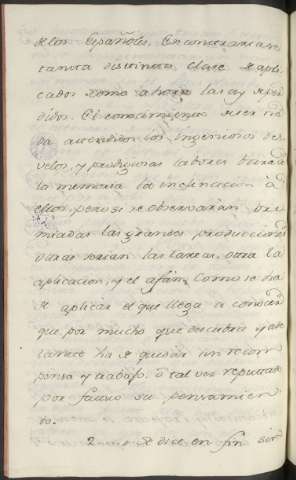 de los Españoles. Encontraran
tanta distincta clase de apli-
cados como ahora las ay de per-
didos. El conocimiento de ser
atendidos sus ingeniosos des-
velos, y prodigiosas labores
la memoria la inclinacion â
ellos, pero si se observaran pre-
miadas las grandes producciones
otras serian las tareas, otra la
aplicacion, y el afán. Como se ha
de aplicar el que llega a conocer
que por mucho que descubra y ade-
lante ha de quedar sin recom-
pensa y trabajo, ô tal vez reputado
por fatuo su pensamien-
to.
se dice en fin